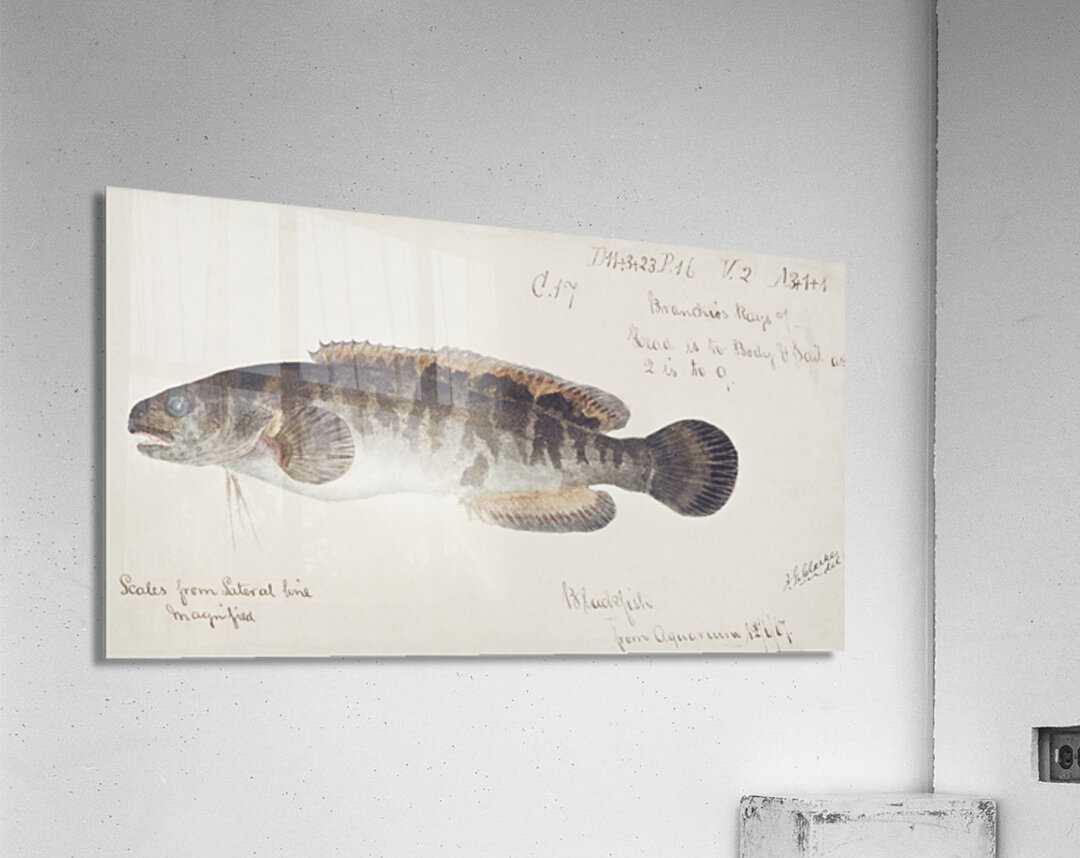 D11+3+23.P.16 V.2 A3+1+1
C.17
Branchios Rays of
Head is to Body & Tail as
2 is to 9.
F.E.Clarke
del
Scales from Lateral line
Magnified
Blackfish
from Aquarium